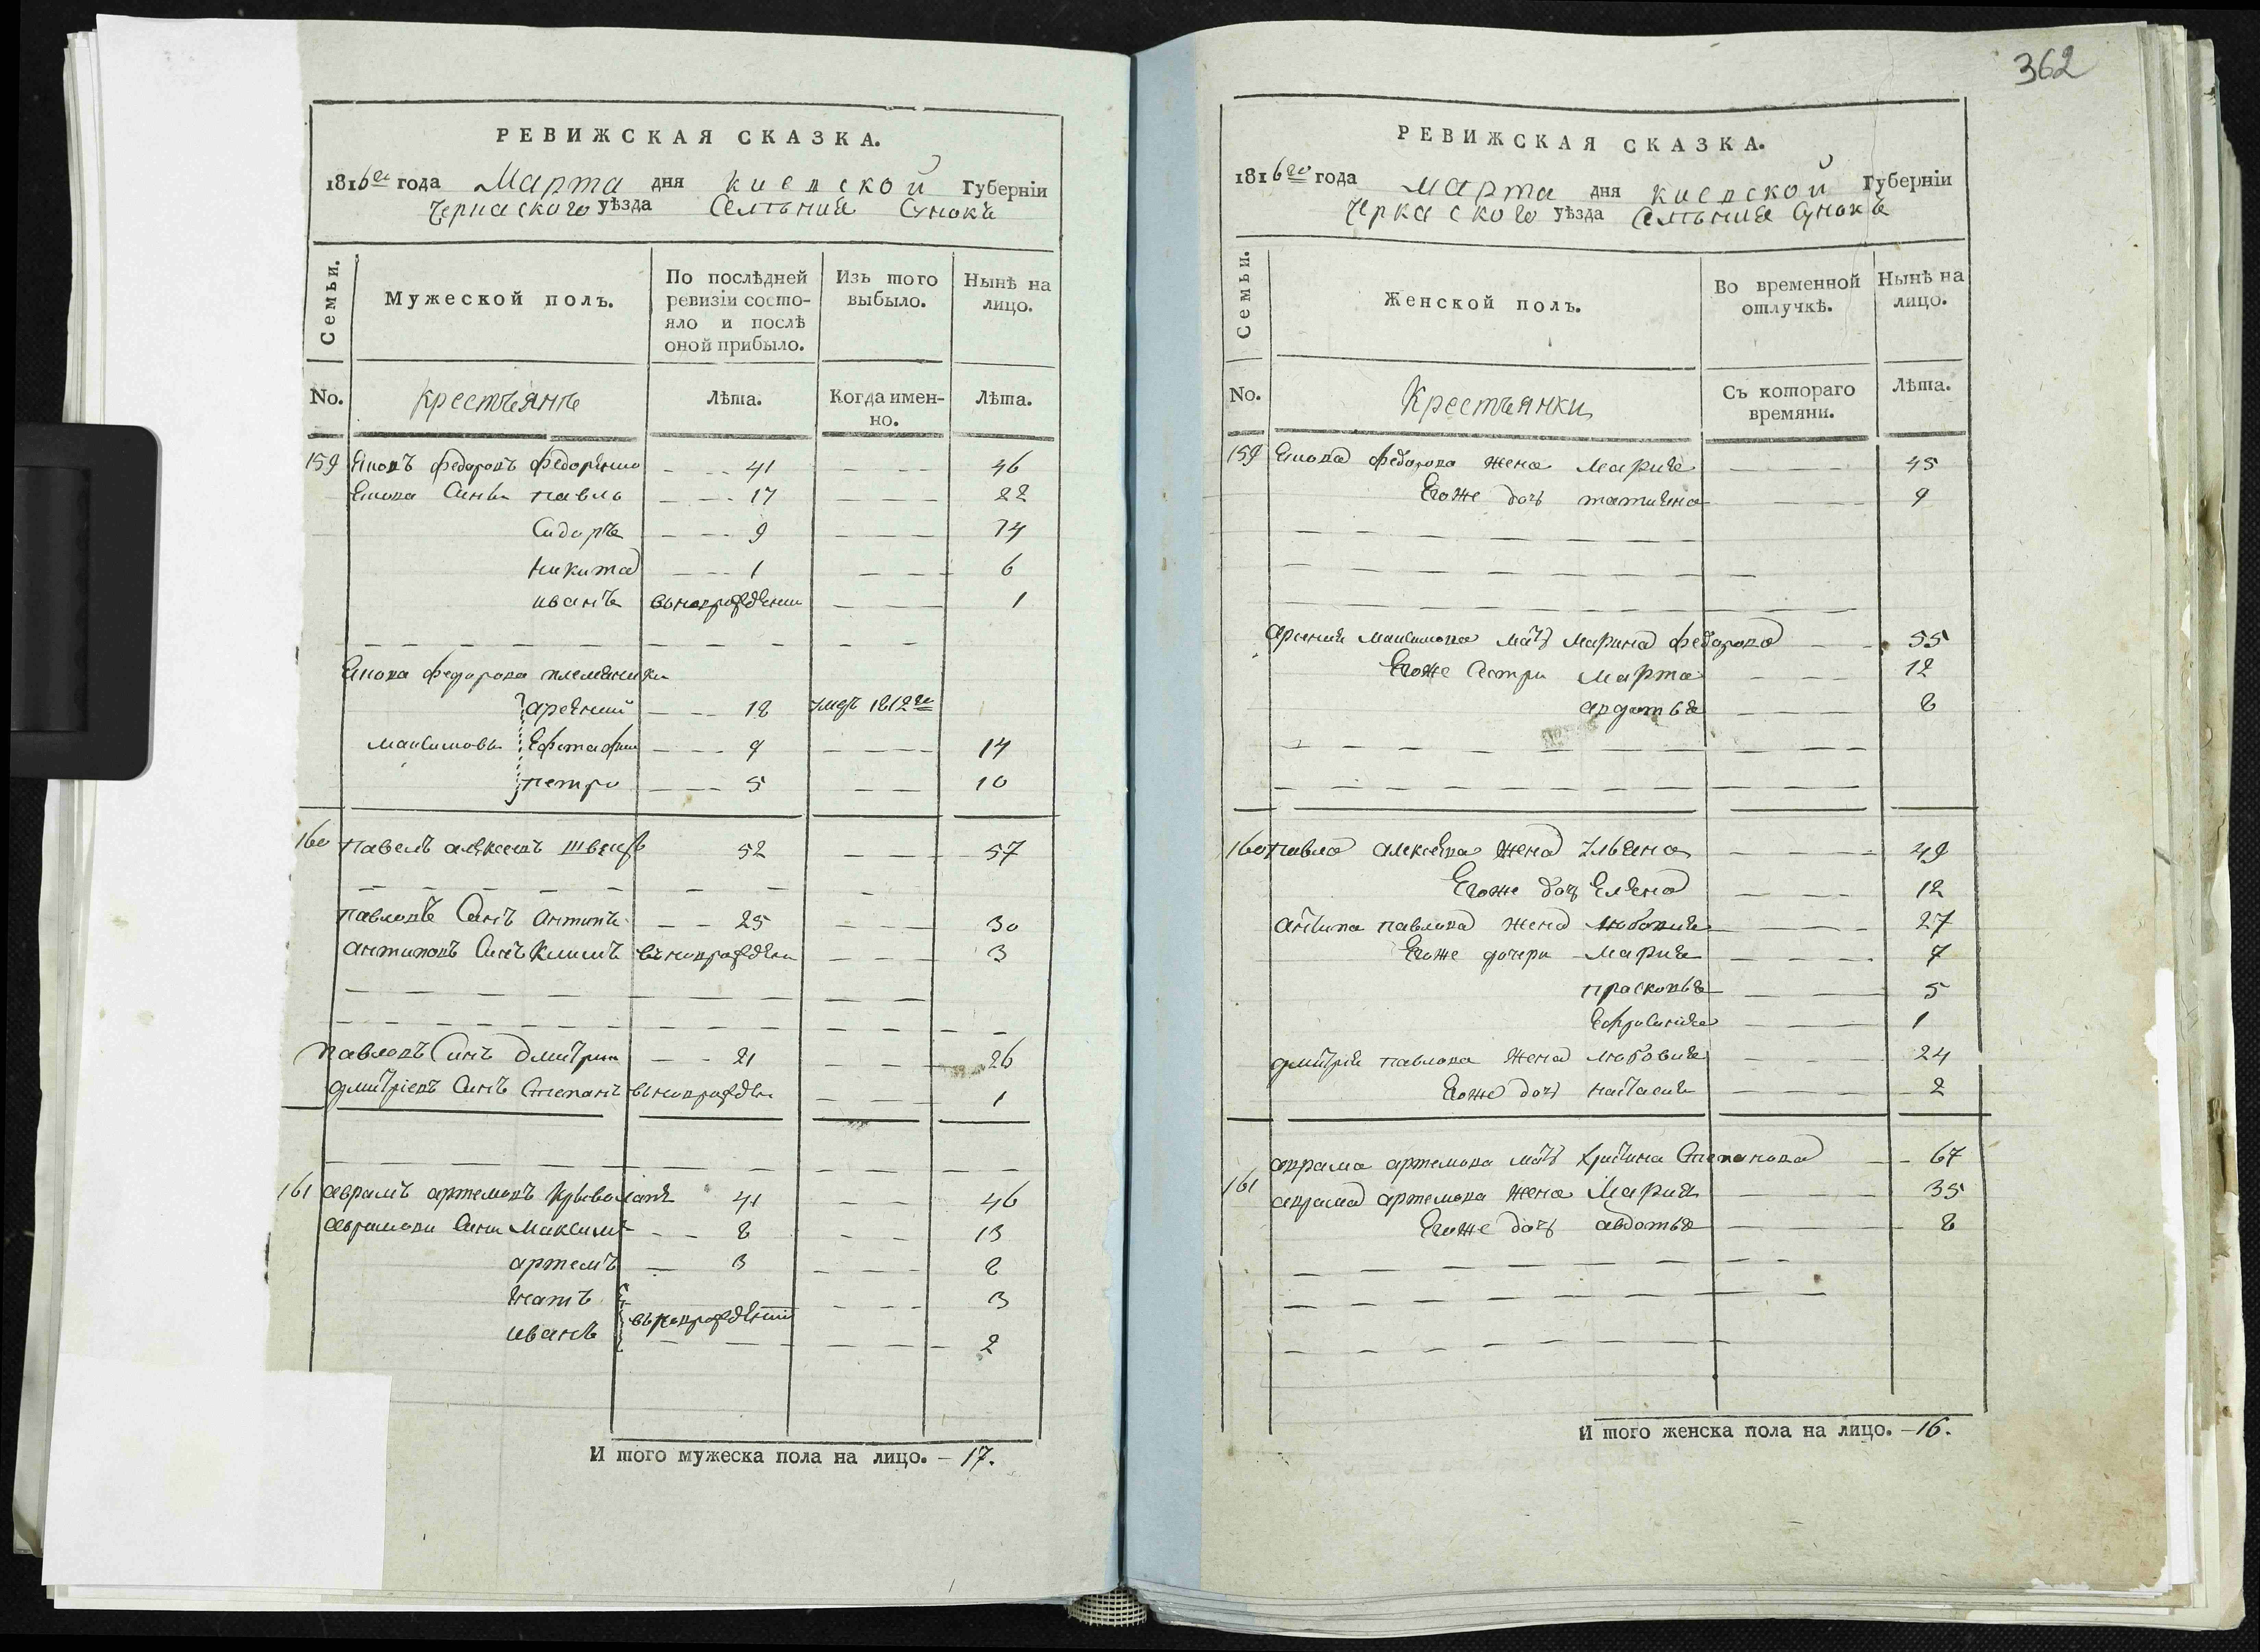 362
РЕВИЖСКАЯ СКАЗКА.
1816го года Марта дня киевской Губерніи
Черкаского уѣзда Селѣния Сунокъ
Семьи.
Мужеской полъ.
По послѣдней ревизіи состояло и послѣ оной прибыло.
Изъ того выбыло.
Нынѣ на лицо.
No. крестьянъ Лѣта. Когда именно. Лѣта.
159 Федоровъ 41 46
Сины павло 17 22
Сидоръ 9 14
Никита 1 6
иванъ вьноворождении 1
Федорова племяники
арсений 18 умръ 1812го
Максимовы 9 14
петро 5 10
160 Павелъ алексеевъ швецъ 52 57
Павловъ Синъ Антипъ 25 30
Антиповъ Синъ Климъ вьноворожден 3
Павловъ Синъ Дмитрии 21 26
Дмитріевъ Синъ Степанъ вьноворожден 1
161 Аврамъ артемовъ 41 46
Аврамови Сини Максимъ 8 13
артемъ 3 8
Игнатъ 3
иванъ вьноворождѣнній 2
И того мужеска пола на лицо. 17.
РЕВИЖСКАЯ СКАЗКА.
1816го года марта дня киевской Губерніи
Черкаского уѣзда Селѣния Сунокъ
Семьи.
Женской полъ.
Во временной отлучкѣ.
Нынѣ на лицо.
No. Крестьянки Съ котораго времяни. Лѣта.
159 Федорова жена Мария 45
Егоже доч татияна 9
Арсения Максимова мать Марина Федорова 55
Егоже Сестри Марта 12
авдотья 8
160 Павла алексѣева жена Ульяна 49
Егоже доч Елена 12
Антипа павлова жена любовия 27
Егоже дочери Мария 7
прасковья 5
Ефросиния 1
Дмитрия павлова жена любовия 24
Егоже доч настасия 2
аврама артемова мать христина Степанова 67
161 аврама артемова жена Мария 35
Егоже доч авдотья 8
И того женска пола на лицо. 16.